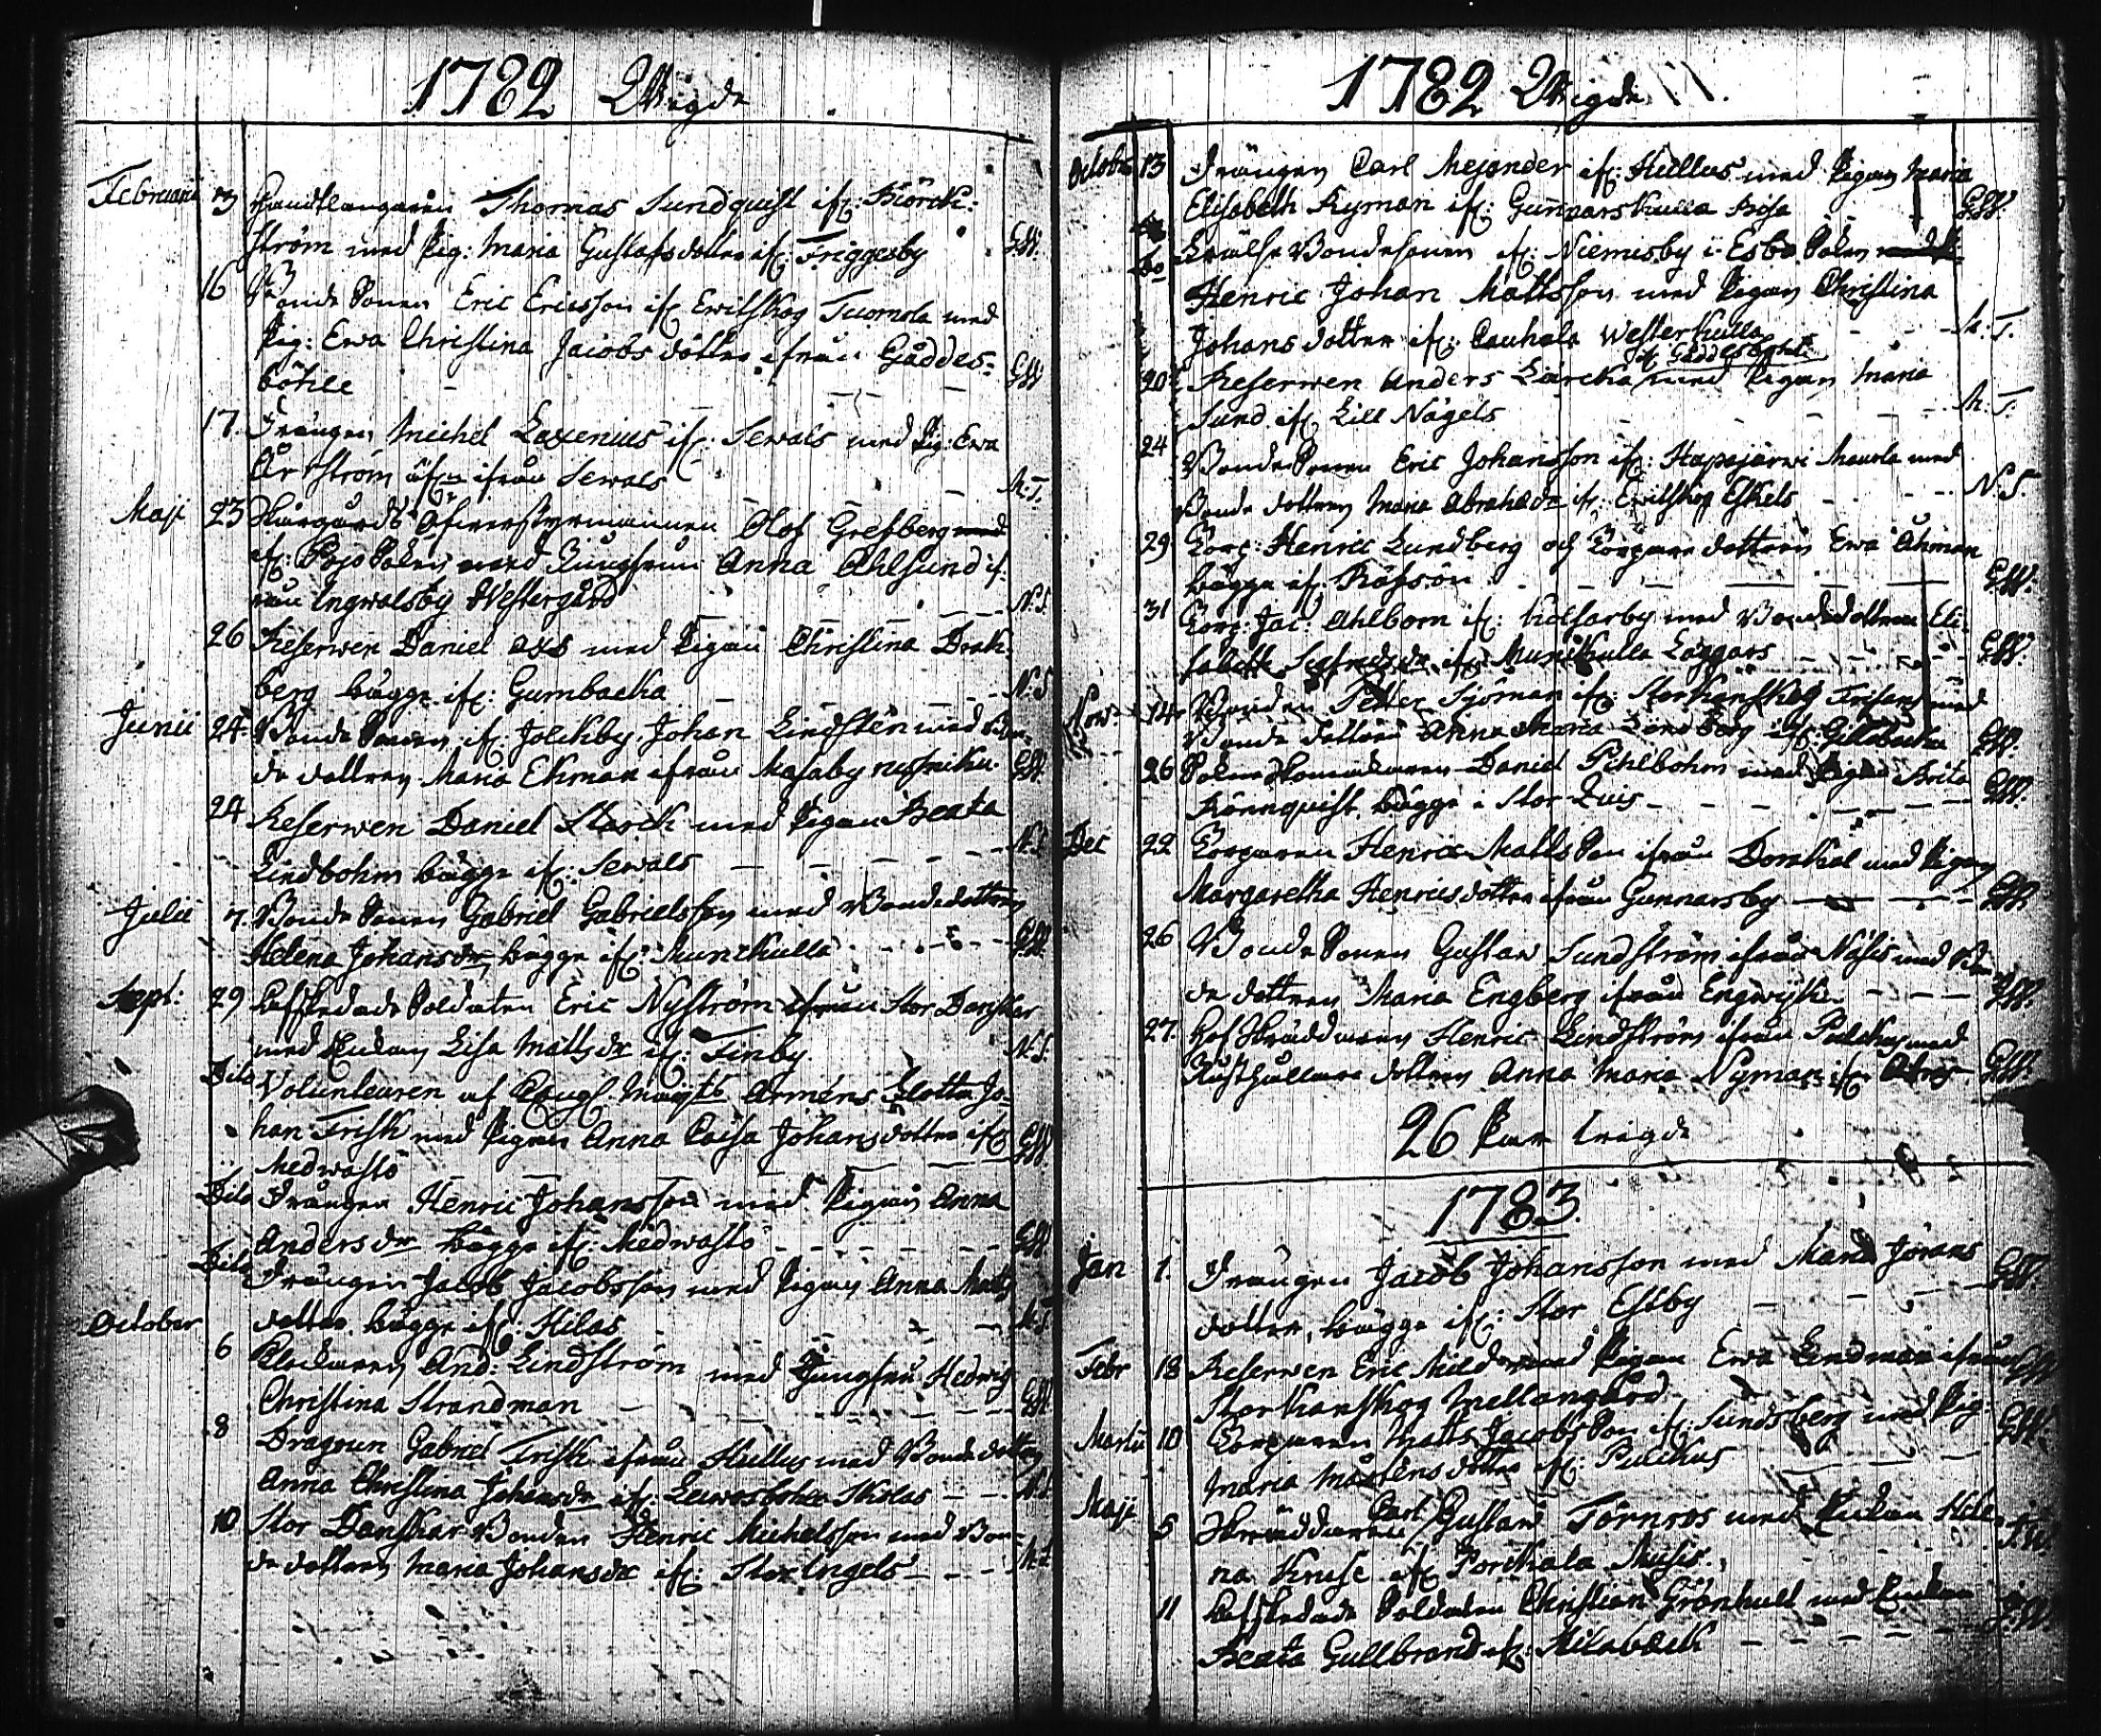 1782 Wigde
Februarii 3 Handtlangaren Thomas Sundquist ifr: Biörck-
ström med Pig: Maria Gustafsdotter ifr: Friggesby GW.
16 Bonde Sonen Eric Ericsson ifr Ewitskog Tuomola med
Pig: Ewa Christina Jacobs dotter ifrån Gäddes-
böhle GW
17. Drängen Michel Laxenius ifr: Sewals med Pig: Ewa
ström ifrån Sewals M.T.
Maji 23 Olof Grefberg med
ifr: Pojo Sokn med Jungfrun Anna Ahlsund if-
rån Ingwalsby Westergård N.S.
26 Reserwen Daniel Axs med Pigan Christina Brak-
berg bägge ifr: Gumbacka N.S
Junii 24. Bonde Sonen ifr: Jolckby Johan Lindsten med Bon-
de dottren Maria Ekman ifrån Masaby GW
24 Reserwen Daniel Starck med Pigan Beata
Lindbohm bägge ifr: Sewals N.S
Julii 7. Bonde Sonen Gabriel Gabrielsson med Bondedottren
Helena Johansdr bägge ifr: Munckulla GW.
Sept: 29 Afskedade Soldaten Eric Nyström ifrån Stor Danskar
med Enkan Lisa Mattsdr ifr: Finby N.S.
Dito Volunteuren af Kongl. Maijts Arméns Flotta Jo-
han Frisk med Pigan Anna Caisa Johansdotter ifr
Medwastö GW
Dito Drängen Henric Johansson med Pigan Anna
Andersdr bägge ifr: Medwastö GW
Dito Drängen Jacob Jacobsson med Pigan Anna Matts
dotter bägge ifr: Hilas M.T
October 6 Klockaren And: Lindström med Jungfru Hedwig
Christina Strandman GW
8 Dragoun Gabriel Frisk ifrån Hullus med Bonde dottren
Anna Christina Johansdr ifr: N.S
10 Stor Danskar Bonden Henric Michelsson med Bon-
de dottren Maria Johansdr ifr: Stor Ingels M.T
1782 Wigde
Octobr 13 Drängen Carl Mejander ifr: Hullus med Pigan Maria
Elisabeth Ryman ifr: Gunnarskulla Böja GW.
Do Frälse Bondesonen ifr: Niemisby i Esbo Sokn
Henric Johan Mattsson med Pigan Christina
Johans dotter ifr: Cauhala Westerkulla M.T.
ifr Gäddesböhle
20 Reserwen Anders Lärcka med Pigan Maria
Sund ifr Lill Nägels M.T.
24 Bonde Sonen Eric Johansson ifr: Hapajärwi Maurola med
Bonde dottren Maria Abrahadr ifr: Ewitskog Eskels N.S.
29 Torp: Henric Lundberg och Torpare dottren Ewa Åhman
bägge ifr: GW.
31 Torp: Jac: Ahlbom ifr: Kolsarby med Bondedottren Eli-
sabeth Sigfredsdr ifr: Munckulla Laggars GW.
Novr 14 Bonden Petter Sjöman ifr: Storkanskog Frisans med
Bonde dottren Anna Maria Lindberg ifr: Gillobacka GW.
26 Sokne Skomakaren Daniel Pihlbohm med Pigan Brita
Rönnquist bägge i Stor Quis GW.
Dec 22 Torparen Henric Matts Son ifrån Domkal med Pigan
Margaretha Henricsdotter ifrån Gunnarsby GW.
26 Bonde Sonen Gustaw Sundström ifrån Näsis med Bon-
de dottren Maria Engberg ifrån Engwijk GW.
27. Hof Skräddaren Henric Lindström ifrån Palckus med
Rusthållare dottren Anna Maria Nyman ifr GW.
26 Par wigde
1783.
Jan 1. Drängen Jacob Johansson med Maria Jörans
dotter, bägge ifr: Stor Estby GW.
Febr 18 Reserwen Eric Mild med Pigan Ewa Lindman ifrån GW
Storkanskog Mellangård
Martii 10 Torparen Matts Jacobs Son ifr: Sundsberg med Pig: GW.
Maria Mårtens dotter ifr: Palckus
Maji 5 Skräddaren Carl Gustaw Törnros med Enkan Hele-
na Kruse ifr Porckala Musis. J.W.
11 Afskedade Soldaten Christian Grönhult med Enkan
Beata Gullbrand ifr: Milaback J.W.